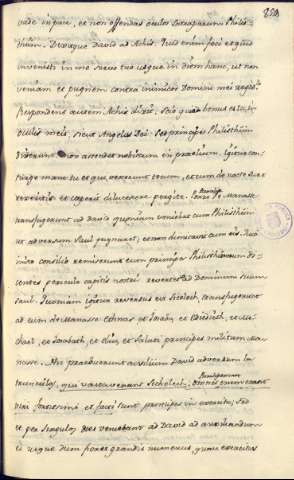 vade in pace, et non offendas oculos Satraparum Philis-
thiim. Dixitque David ad Achis. Quid enim feci et quid
invenisti in me servo tuo usque in diem hanc, ut non
veniam et pugnem contra inimicos Domini mei regis?
Respondens autem Achis dixit. Scio quia bonus es tu in
oculis meis, sicut Angelus Dei: sed principes Philisthiim
dixerunt Non ascendet nobiscum in praelium. Igitur con-
surge mane tu et qui venerunt tecum, et cum de nocte sur-
rexeritis et coeperit dilucescere pergite. Porro de Manasse
transfugerunt ad David quando veniebat cum Philisthiim
adversum Saul pugnaret, et non dimicavit cum eis. Qui
inito consilio remiserunt eum principes Philisthinorum di-
centes periculo capitis nostri revertetur ad Dominum suum
Saul. Quando igitur reversus est Sicelech, transfugerunt
ad eum de Manasse Ednas et Jozabad et Jedihel, et Mi-
chael, et Jozabad, et Eliu et Salathi principes millium Ma-
nasse. Hi praebuerunt auxilium David adversum la-
trunculos, qui vastaverant Sicelech, omnes enim erant
viri fortissimi et facti sunt principes in exercitu. Sed
et per singulos dies veniebant ad David ad auxiliandum
ei usque dum fieret grandis numerus, quasi exercitus